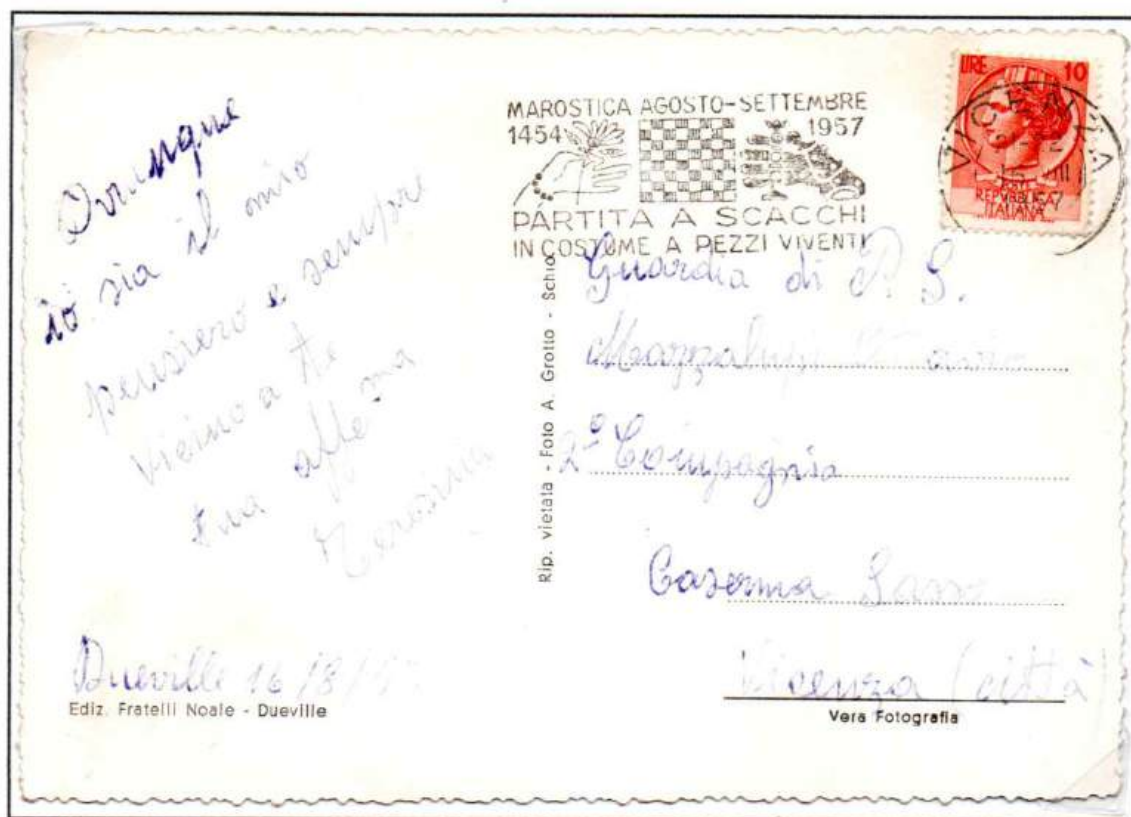 Ovunque
io sia il mio
pensiero e sempre
vicino a te
tua aff.ma
Teresina
Dueville 16/8/5
Ediz. Fratelli Noale - Dueville
Rip. vietata - Foto A. Grotto - Schio
MAROSTICA AGOSTO-SETTEMBRE
1454 1957
PARTITA A SCACCHI
IN COSTUME A PEZZI VIVENTI
LIRE 10
POSTE
REPVBBLICA
ITALIANA
VICENZA
Guardia di P. S.
Mazzalupi
2º Compagnia
Caserma Sasso
Vicenza (città)
Vera Fotografia